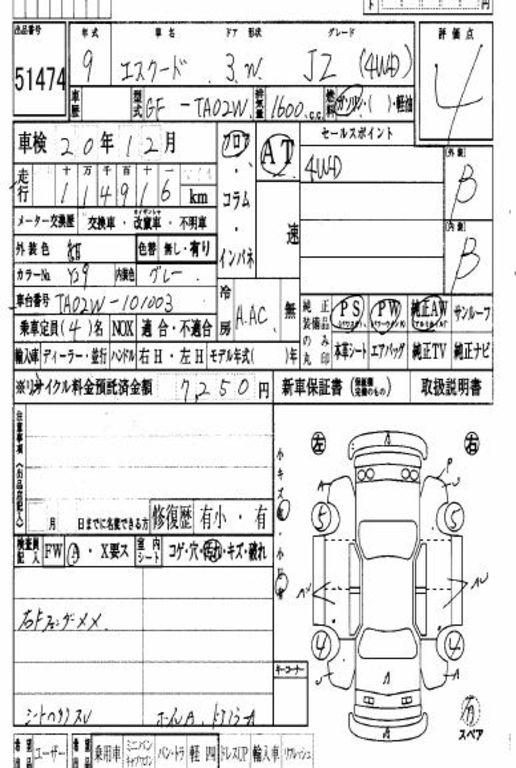 円
出品番号 年式 車名 ドア 形状 グレード 評価点
51474 9 エスクード 3.W JZ (4WD) 4
車歴 型式 GF-TA02W 排気量 1600c.c. 燃料 ガソリン・( )・軽油
車検 20年12月 フロア・コラム・インパネ AT 速 セールスポイント
4WD
[外装] B
[内装] B
走行 十万千百十一
114916 km
メーター交換歴 交換車・改竄車・不明車
外装色 紺 色替 無し・有り
カラーNo. Y29 内装色 グレー
車台番号 TA02W-101003
冷房 A.AC 無
純正装備品のみ丸印 PS PW 純正AW サンルーフ
(パワーステ) (パワーウインド) (アルミホイル)
本革シート エアバッグ 純正TV 純正ナビ
乗車定員(4)名 NOX 適合・不適合
輸入車 ディーラー・並行 ハンドル 右H・左H モデル年式( )年
※リサイクル料金預託済金額 7,250円 新車保証書 取扱説明書
注意事項(出品店記入)
月 日までに名変できる方 修復歴 有小・有
検査員記入 FW A・X要ス 室内シート コゲ・穴・汚れ・キズ・破れ
左 右
A P
5 5
AW AW
4 4
A A A
有
スペア
右Fフェンダーメメ
コーナー
ユーザー 乗用車 ミニバン キャブワゴン バン・トラ 軽 四 ドレスUP 輸入車 リフレッシュ